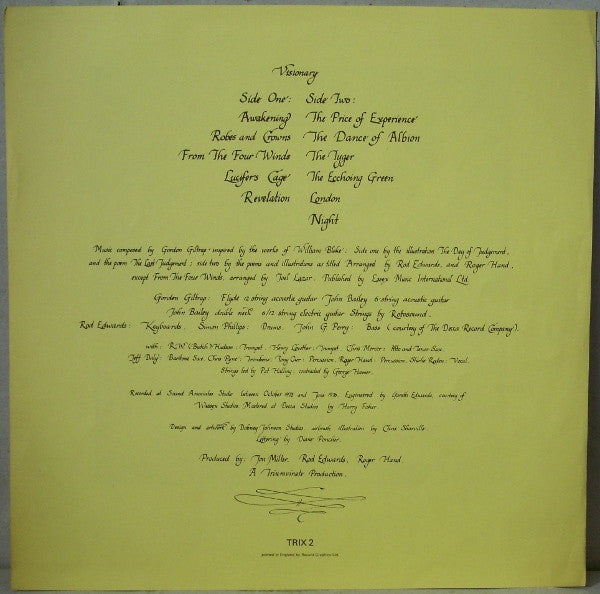 Visionary
Side One: Side Two:
Awakening The Price of Experience
Robes and Crowns The Dance of Albion
From The Four Winds The Tyger
Lucifers Cage The Ecchoing Green
Revelation London
Night
Music composed by Gordon Giltrap inspired by the works of William Blake: Side one by the illustration The Day of Judgement,
and the poem The Last Judgement; side two by the poems and illustrations as titled Arranged by Rod Edwards, and Roger Hand,
except From The Four Winds, arranged by Joel Lazar. Published by Essex Music International Ltd
Gordon Giltrap: Flyde 12 string acoustic guitar John Bailey 6 string acoustic guitar
John Bailey double neck 6/12 string electric guitar Strings by Rotosound.
Rod Edwards: Keyboards, Simon Phillips: Drums. John G. Perry: Bass (courtesy of The Decca Record Company).
with: R.W. (Butch) Hudson: Trumpet, Henry Lowther: Trumpet, Chris Mercer: Alto and Tenor Sax.
Jeff Daly: Baritone Sax, Chris Pyne: Trombone. Tony Carr: Percussion, Roger Hand: Percussion, Shirlie Roden: Vocal.
Strings led by Pat Halling contracted by George Hamer.
Recorded at Sound Associates Studio between October 1975 and June 1976. Engineered by Gareth Edwards, courtesy of
Wessex Studios Mastered at Decca Studios by Harry Fisher.
Design and artwork by Dobney Johnson Studios, airbrush illustration by Chris
Lettering by Diane
Produced by: Jon Miller, Rod Edwards, Roger Hand.
A Triumvirate Production.
TRIX 2
printed in England by